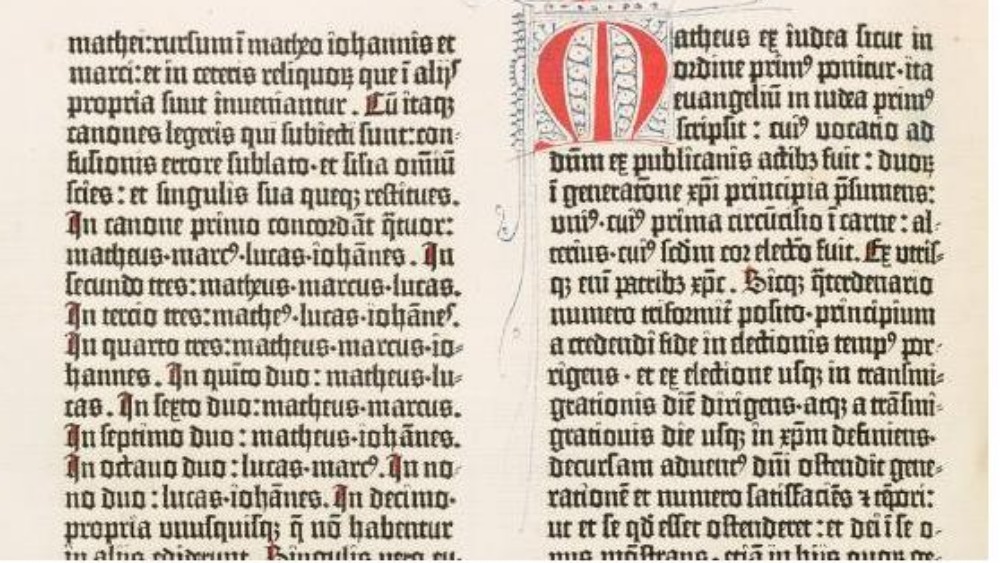 mathei:rursum ī matheo iohannis et
marci: et in ceteris reliquoꝝ que ī alijs
propria sunt inueniantur. Cū itaqꝫ
canones legeris qui subiecti sunt: con-
fusionis errore sublato· et silia om̄iū
scies: et singulis sua queqꝫ restitues.
In canone primo concordāt q̄tuor:
matheus·marcꝰ·lucas·iohānes. In
secundo tres: matheus·marcus·lucas.
In tercio tres: matheꝰ·lucas·iohānes.
In quarto tres: matheus·marcus·io-
hannes. In quīto duo: matheus·lu-
cas. In sexto duo: matheus·marcus.
In septimo duo: matheus·iohānes.
In octauo duo: lucas·marcꝰ. In no-
no duo: lucas·iohānes. In decimo·
propria unusquisqꝫ q̄ nō habentur
in alijs ediderunt. Singulis vero eu-
Matheus ex iudea sicut in
ordine primꝰ ponitur· ita
euangeliū in iudea primꝰ
scripsit: cuiꝰ vocatio ad
dūm ex publicanis actibꝫ fuit: duoꝝ
ī generatōne xp̄i principia p̄sumens:
uniꝰ· cuiꝰ prima circūcisio ī carne: al-
terius· cuiꝰ sc̄dm cor electio fuit. Ex utris-
qꝫ eni patribꝫ xp̄c. Sicqꝫ q̄terdenario
numero triformit̄ posito· principium
a credendi fide in electionis tempꝰ por-
rigens· et ex electione usqꝫ in transmi-
grationis diē dirigens· atqꝫ a trāsmi-
grationis die usqꝫ in xp̄m definiens·
decursam aduentꝰ dn̄i ostendit gene-
rationē et numero satisfaciēs ⁊ tēpori:
ut et se qd̄ esset ostenderet: et dei ī se o-
pus mōstrans· etiā in hijs quoꝝ ge-